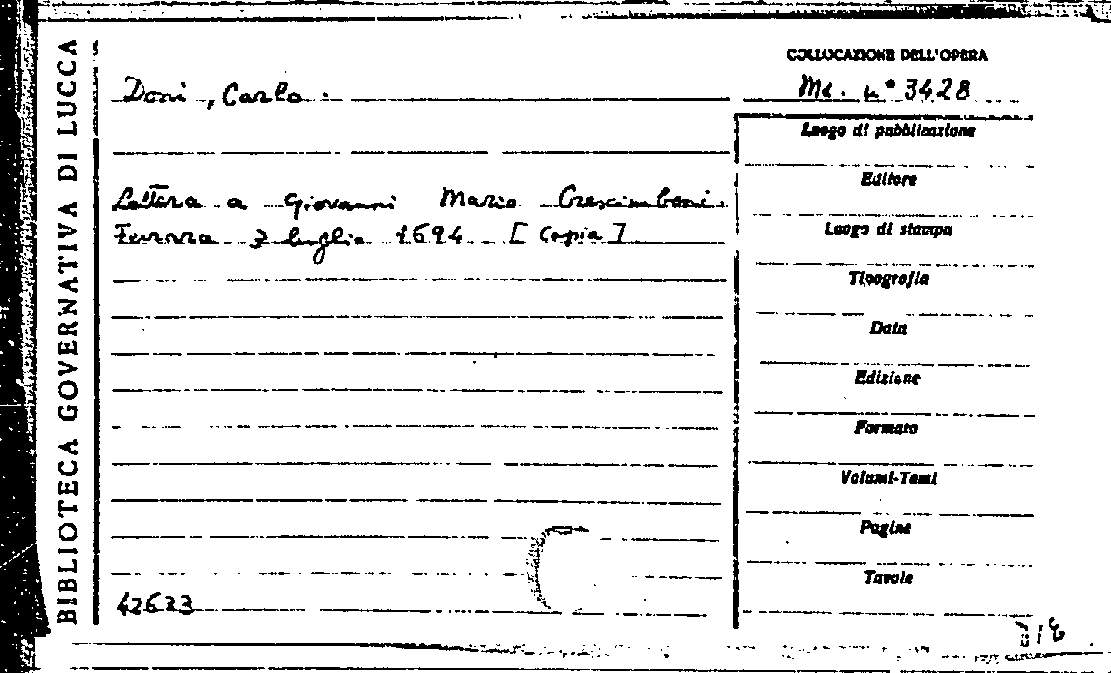 BIBLIOTECA GOVERNATIVA DI LUCCA
Doni, Carlo.
Lettera a Giovanni Mario Crescimbeni.
Ferrara 3 luglio 1694 [Copia]
42633
COLLOCAZIONE DELL'OPERA
Ms. n° 3428
Luogo di pubblicazione
Editore
Luogo di stampa
Tipografia
Data
Edizione
Formato
Volumi-Tomi
Pagine
Tavole